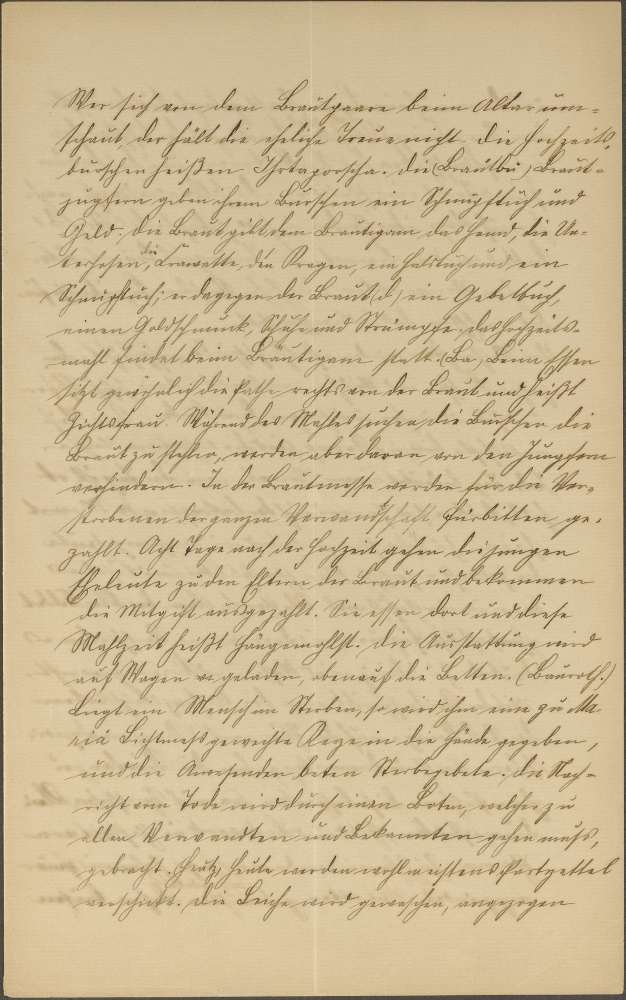 Wer sich von dem Brautpaare beim Altar um-
schaut, der hält die eheliche Treue nicht. Die Hochzeits-
burschen heißen . Die (Brautbu) Braut-
jugfern geben ihrem Burschen ein Schnupftuch und
Geld; die Braut gibt dem Bräutigam das Hemd, die Un-
terhosen, die Krawatte, den Kragen, ein Halstuch und ein
Schnupftuch; er dagegen der Braut (d) ein Gebetbuch,
einen Goldschmuck, Schuhe und Strümpfe, das Hochzeits-
mahl findet beim Bräutigam statt. (Ba, Beim Essen
sitzt gewöhnlich die Pathe rechts von der Braut und heißt
. Während des Mahles suchen die Burschen die
Braut zu stehlen, werden aber davon von den Jungfern
verhindern. In der Brautmesse werden für die Ver-
storbenen der ganzen Verwandtschaft Fürbitten ge-
zahlt. Acht Tage nach der Hochzeit gehen die jungen
Eheleute zu den Eltern der Braut und bekommen
die Mitgift ausgezahlt. Sie essen dort und diese
Mahlzeit heißt . Die Ausstattung wird
auf Wagen geladen, obenauf die Betten. (Bauroth.)
Liegt ein Mensch im Sterben, so wird ihm eine zu Ma-
riä Lichtmess geweihte Kerze in die Hände gegeben,
und die Anwesenden beten Sterbegebete. Die Nach-
richt vom Tode wird durch einen Boten, welcher zu
allen Verwandten und Bekannten gehen muss,
gebracht. Heute werden wohl meistens Partzettel
verschickt. Die Leiche wird gewaschen, angezogen